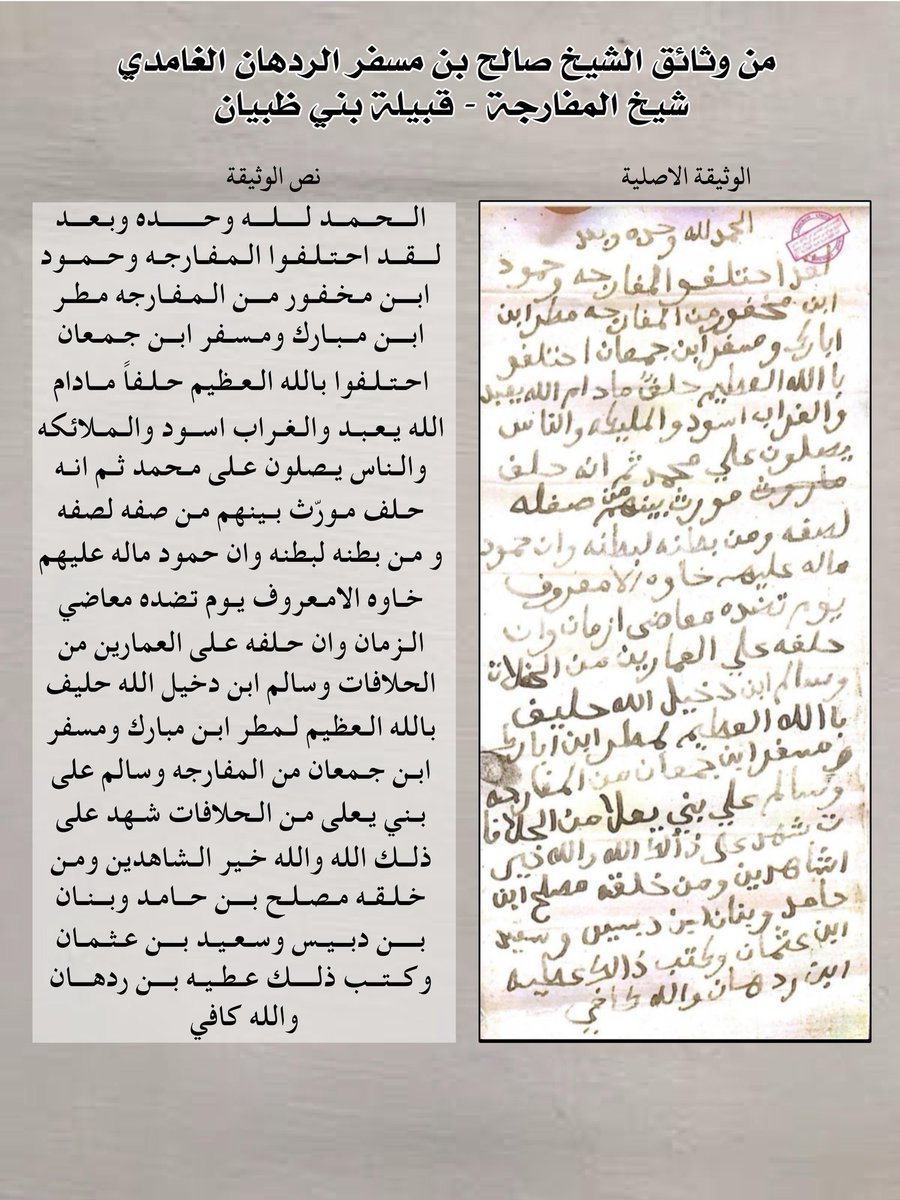 من وثائق الشيخ صالح بن مسفر الردهان الغامدي
شيخ المفارجة - قبيلة بني ظبيان
الوثيقة الاصلية
الحمد لله وحده وبعد
لقد احتلفوا المفارجه وحمود
ابن مخفور من المفارجه مطر ابن
ابارك ومسفر ابن جمعان احتلفو
با الله العظيم حلفً مادام الله يعبد
والغراب اسود والمليكه والناس
يصلون علي محمد ثم انه حلف
مورث بينهم من صفله
لصفه ومن بطنه لبطنه وان حمود
ماله عليهم خاوه الامعروف
يوم تضده معاضي ازمان وان
حلفه علي العمارين من الحلات
وسالم ابن دخيل الله حليف
با الله العظيم لمطر ابن ابارك
ومسفر ابن جمعان من المفارجه
وسالم علي بني يعلا من الحلافا
ت شهد على ذالك الله والله خير
اشاهدين ومن خلقه مصلح ابن
حامد وبنان ابن دبيس وسعيد
ابن عثمان وكتب ذالك عطيه
ابن ردهان والله كافي
نص الوثيقة
الحمد لله وحده وبعد
لقد احتلفوا المفارجه وحمود
ابن مخفور من المفارجه مطر
ابن مبارك ومسفر ابن جمعان
احتلفوا بالله العظيم حلفاً مادام
الله يعبد والغراب اسود والملائكه
والناس يصلون على محمد ثم انه
حلف مورّث بينهم من صفه لصفه
و من بطنه لبطنه وان حمود ماله عليهم
خاوه الامعروف يوم تضده معاضي
الزمان وان حلفه على العمارين من
الحلافات وسالم ابن دخيل الله حليف
بالله العظيم لمطر ابن مبارك ومسفر
ابن جمعان من المفارجه وسالم على
بني يعلى من الحلافات شهد على
ذلك الله والله خير الشاهدين ومن
خلقه مصلح بن حامد وبنان
بن دبيس وسعيد بن عثمان
وكتب ذلك عطيه بن ردهان
والله كافي